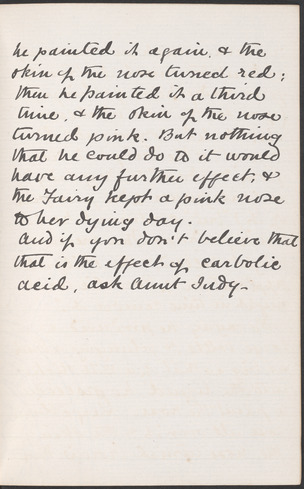 he painted it again, & the
skin of the nose turned red;
then he painted it a third
time, & the skin of the nose
turned pink. But nothing
that he could do to it would
have any further effect; &
the Fairy kept a pink nose
to her dying day.
And if you don't believe that
that is the effect of carbolic
acid, ask Aunt Judy.